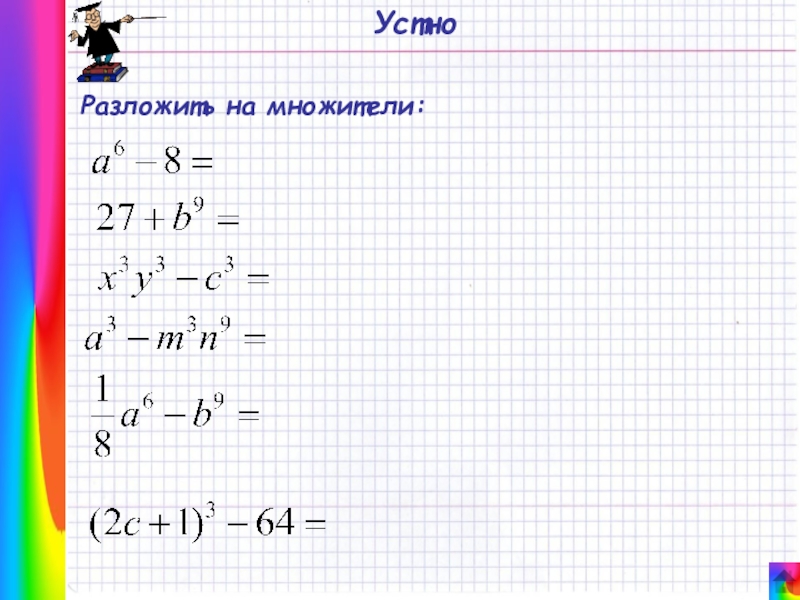 Устно
Разложить на множители:
a⁶ – 8 =
27 + b⁹ =
x³y³ – c³ =
a³ – m³n⁹ =
1/8 a⁶ – b⁹ =
(2c + 1)³ – 64 =